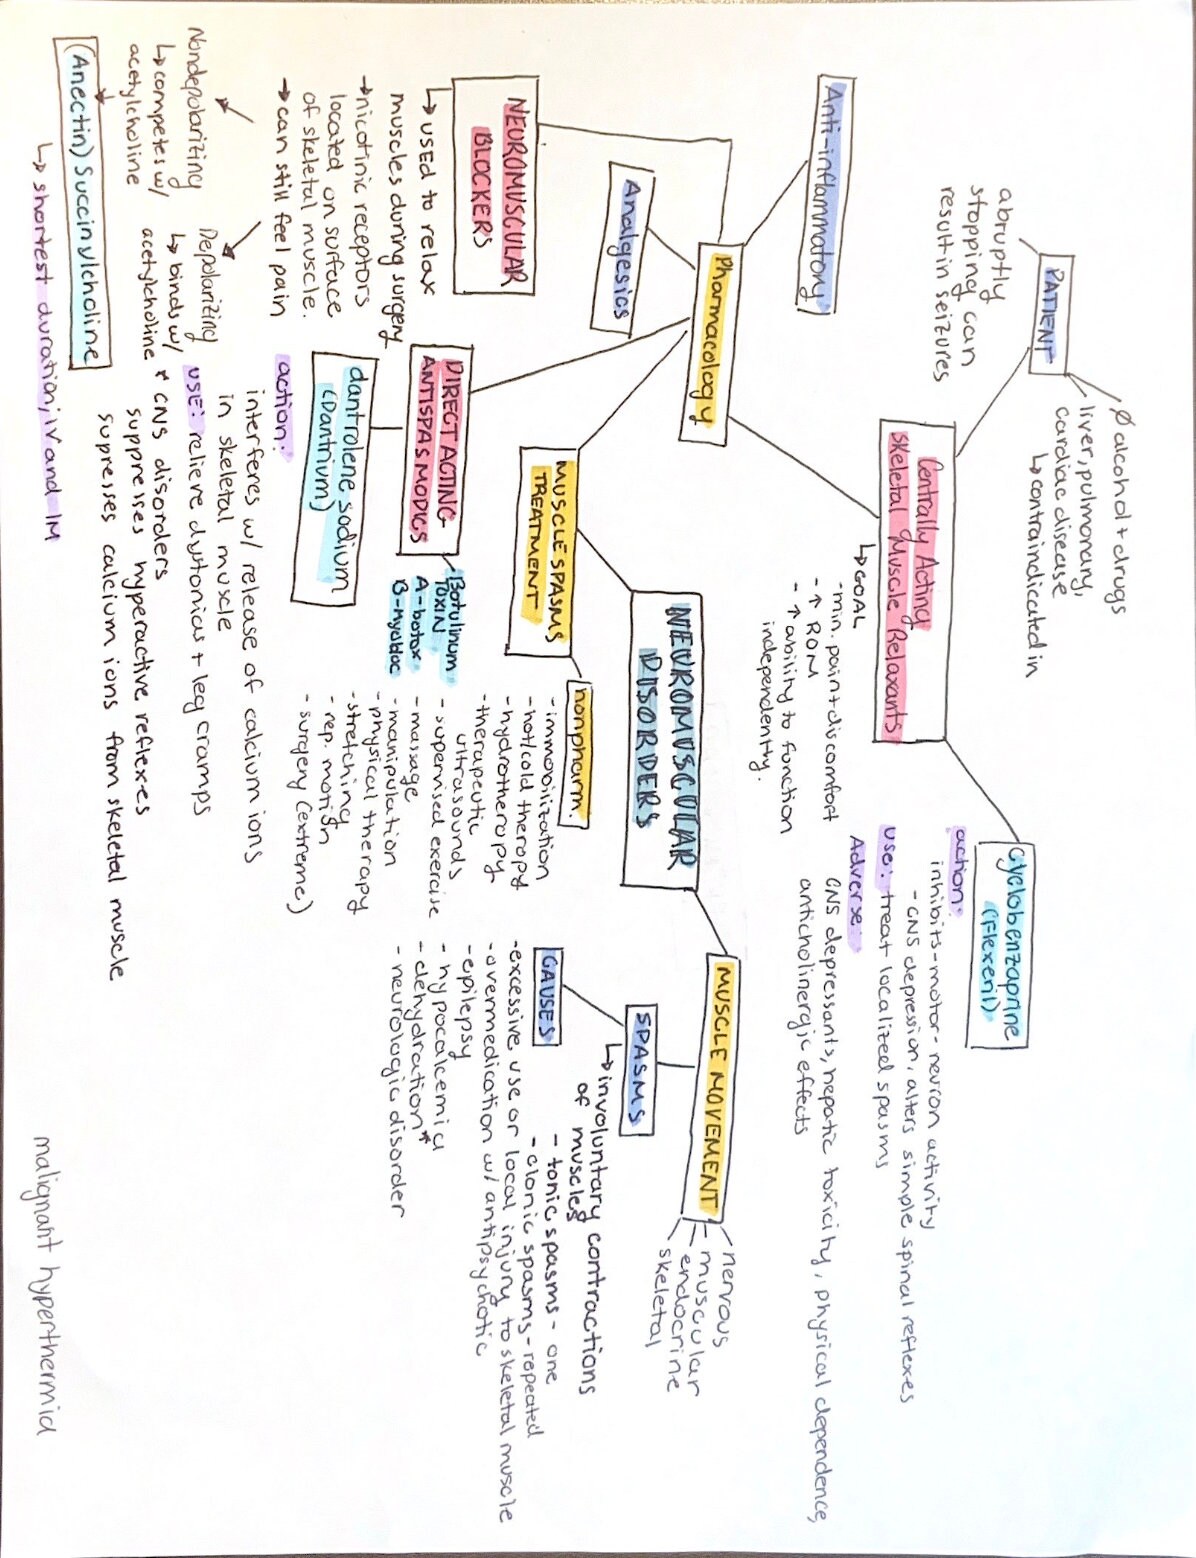 PATIENT
abruptly
stopping can
result in seizures
∅ alcohol + drugs
liver, pulmonary,
cardiac disease
↳ contraindicated in
Anti-inflammatory
Centrally Acting
Skeletal Muscle Relaxants
↳ GOAL
- min. pain + discomfort
- ↑ ROM
- ↑ ability to function
independently.
cyclobenzaprine
(Flexeril)
action:
inhibits-motor-neuron activity
- CNS depression, alters simple spinal reflexes
use: treat localized spasms
Adverse:
CNS depressants, hepatic toxicity, physical dependence,
anticholinergic effects
Pharmacology
Analgesics
NEUROMUSCULAR
BLOCKERS
↳ USED to relax
muscles during surgery
→ nicotinic receptors
located on surface
of skeletal muscle.
→ can still feel pain
Nondepolarizing
↳ competes w/
acetylcholine
Depolarizing
↳ binds w/
acetylcholine r
(Anectin) Succinylcholine
↳ shortest duration; IV and IM
DIRECT ACTING
ANTISPASMODICS
Botulinum
Toxin
A-botox
B-myobloc
dantrolene sodium
(Dantrium)
action:
interferes w/ release of calcium ions
in skeletal muscle
USE: relieve dystonicas + leg cramps
CNS disorders
suppresses hyperactive reflexes
supresses calcium ions from skeletal muscle
MUSCLE SPASMS
TREATMENT
nonpharm.
- immobilization
- hot/cold therapy
- hydrotherapy
- therapeutic
ultrasounds
- supervised exercise
- massage
- manipulation
- physical therapy
- stretching
- rep. motion
- surgery (extreme)
NEUROMUSCULAR
DISORDERS
MUSCLE MOVEMENT
nervous
muscular
endocrine
skeletal
SPASMS
↳ involuntary contractions
of muscles
- tonic spasms - one
- clonic spasms - repeated
CAUSES
- excessive use or local injury to skeletal muscle
- overmedication w/ antipsychotic
- epilepsy
- hypocalcemia
- dehydration*
- neurologic disorder
malignant hyperthermia